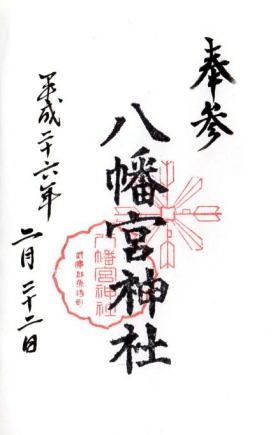 奉参
八幡宮神社
平成二十六年
二月二十二日
八幡宮神社